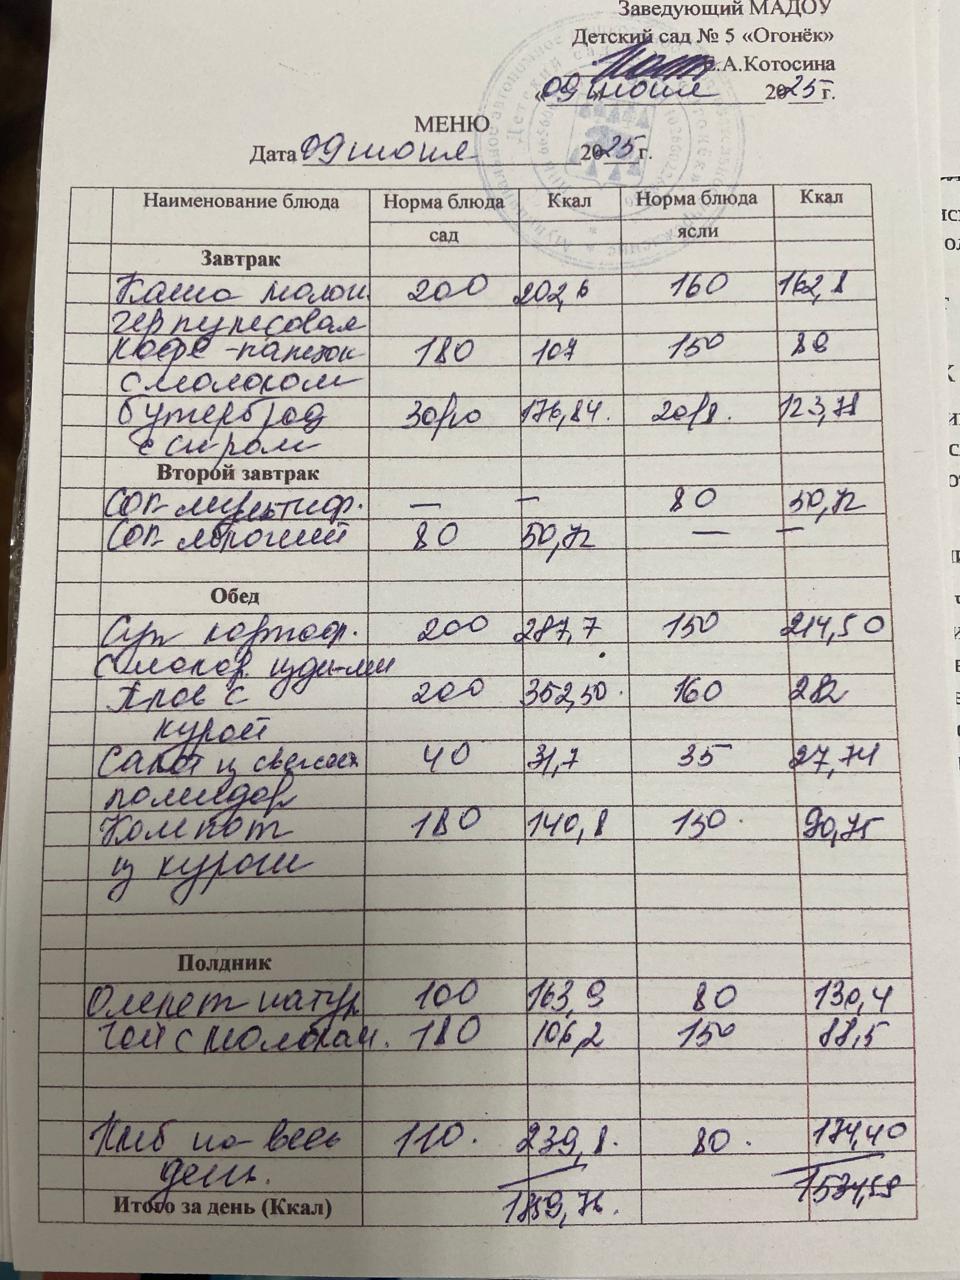 Заведующий МАДОУ
Детский сад № 5 «Огонёк»
Е.А.Котосина
«09 июня 2025 г.
МЕНЮ
Дата 09 июня 2025 г.
Наименование блюда Норма блюда Ккал Норма блюда Ккал
сад ясли
Завтрак
Каша молоч. 200 202,6 160 162,8
геркулесовая
Кофе-напиток 180 107 150 89
с молоком
Бутерброд 30/10 176,84. 20/8. 123,78
с сыром
Второй завтрак
Сок мультиф. — — 80 50,72
Сок яблочный 80 50,72 — —
Обед
Суп картоф. 200 287,7 150 214,50
с макар. изд-ми
Плов с 200 352,50. 160 282
курой
Салат из свежих 40 31,7 35 27,74
помидор
Компот 180 140,8 150. 90,75
из кураги
Полдник
Омлет натур 100 163,9 80 130,4
Чай с молоком. 180 106,2 150 88,5
Хлеб на весь 110. 239,8. 80. 174,40
день.
Итого за день (Ккал) 1859,76. 1534,59